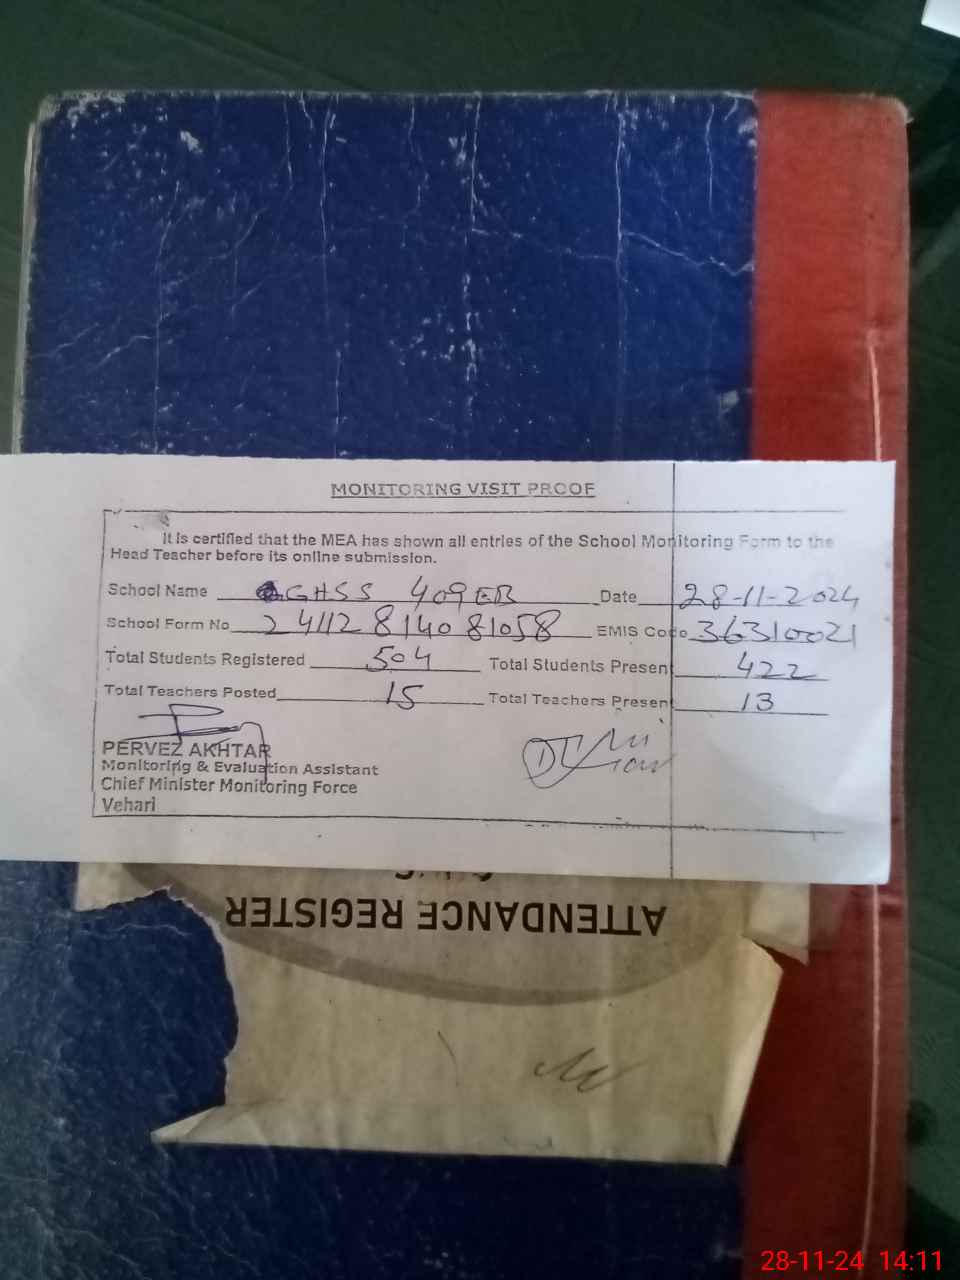 MONITORING VISIT PROOF
It is certified that the MEA has shown all entries of the School Monitoring Form to the
Head Teacher before its online submission.
School Name GHSS 409EB Date 28-11-2024
School Form No 24112814081058 EMIS Code 36310021
Total Students Registered 504 Total Students Present 422
Total Teachers Posted 15 Total Teachers Present 13
PERVEZ AKHTAR
Monitoring & Evaluation Assistant
Chief Minister Monitoring Force
Vehari
ATTENDANCE REGISTER
28-11-24 14:11